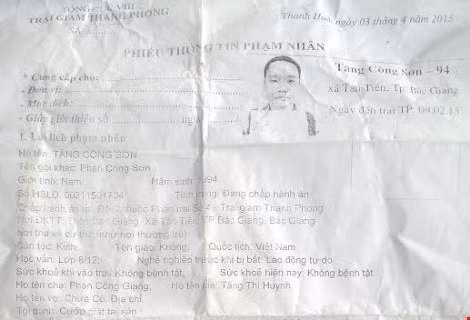 TỔNG CỤC VIII
TRẠI GIAM THANH PHONG
Thanh Hoá, ngày 03 tháng 4 năm 2015
PHIẾU THÔNG TIN PHẠM NHÂN
* Cung cấp cho:
- Đơn vị:
- Mục đích:
- Giấy giới thiệu số ngày
Tăng Công Sơn - 94
xã Tân Tiến, Tp. Bắc Giang
Ngày đến trại TP: 09.02.15
1. Lai lịch phạm nhân
Họ tên: TĂNG CÔNG SƠN
Tên gọi khác: Phan Công Sơn
Giới tính: Nam Năm sinh: 1994
Số HSLĐ: Đang chấp hành án
Chấp hành án tại: Phân trại Số 4 - Trại giam Thanh Phong
Nơi ĐKTT: Giang, Xã Tân Tiến, TP Bắc Giang, Bắc Giang
Nơi thực tế cư trú: (như nơi thường trú)
Dân tộc: Kinh, Tôn giáo: Không, Quốc tịch: Việt Nam
Học vấn: Lớp 8/12, Nghề nghiệp trước khi bị bắt: Lao động tự do
Sức khoẻ khi vào trại: Không bệnh tật, Sức khoẻ hiện nay: Không bệnh tật
Họ tên cha: Phan Công Giang, Họ tên mẹ: Tăng Thị Huỳnh
Họ tên vợ: Chưa Có, Địa chỉ:
Tội danh: Cướp giật tài sản